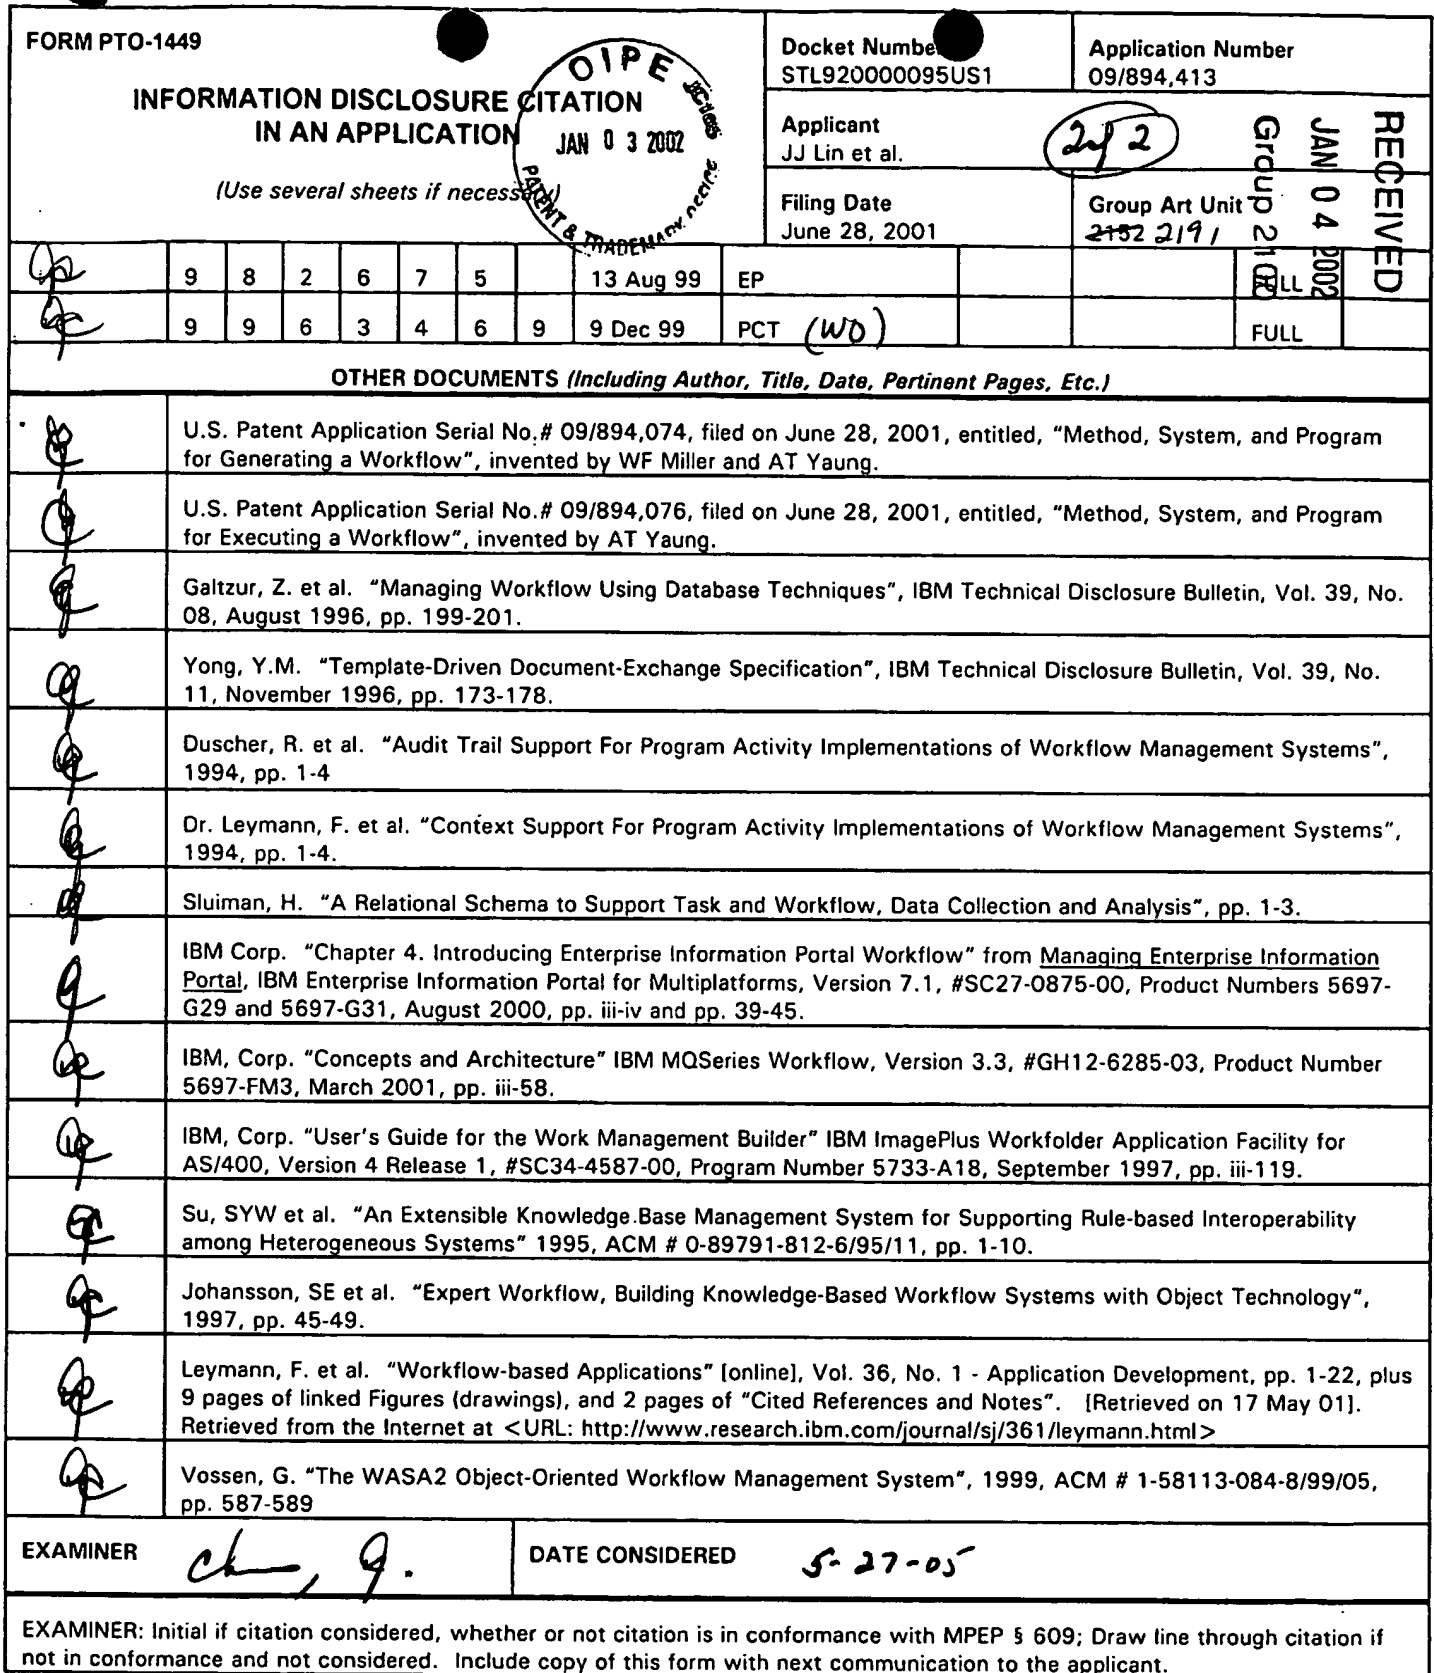 FORM PTO-1449
INFORMATION DISCLOSURE CITATION
IN AN APPLICATION
(Use several sheets if necessary)
OIPE
JAN 03 2002
PATENT & TRADEMARK
Docket Number
STL920000095US1
Application Number
09/894,413
Applicant
JJ Lin et al.
2 of 2
Filing Date
June 28, 2001
Group Art Unit
2152 2191
RECEIVED
JAN 04 2002
Group 2100
9 8 2 6 7 5 13 Aug 99 EP FULL
9 9 6 3 4 6 9 9 Dec 99 PCT (WO) FULL
OTHER DOCUMENTS (Including Author, Title, Date, Pertinent Pages, Etc.)
U.S. Patent Application Serial No.# 09/894,074, filed on June 28, 2001, entitled, "Method, System, and Program
for Generating a Workflow", invented by WF Miller and AT Yaung.
U.S. Patent Application Serial No.# 09/894,076, filed on June 28, 2001, entitled, "Method, System, and Program
for Executing a Workflow", invented by AT Yaung.
Galtzur, Z. et al. "Managing Workflow Using Database Techniques", IBM Technical Disclosure Bulletin, Vol. 39, No.
08, August 1996, pp. 199-201.
Yong, Y.M. "Template-Driven Document-Exchange Specification", IBM Technical Disclosure Bulletin, Vol. 39, No.
11, November 1996, pp. 173-178.
Duscher, R. et al. "Audit Trail Support For Program Activity Implementations of Workflow Management Systems",
1994, pp. 1-4
Dr. Leymann, F. et al. "Context Support For Program Activity Implementations of Workflow Management Systems",
1994, pp. 1-4.
Sluiman, H. "A Relational Schema to Support Task and Workflow, Data Collection and Analysis", pp. 1-3.
IBM Corp. "Chapter 4. Introducing Enterprise Information Portal Workflow" from Managing Enterprise Information
Portal, IBM Enterprise Information Portal for Multiplatforms, Version 7.1, #SC27-0875-00, Product Numbers 5697-
G29 and 5697-G31, August 2000, pp. iii-iv and pp. 39-45.
IBM, Corp. "Concepts and Architecture" IBM MQSeries Workflow, Version 3.3, #GH12-6285-03, Product Number
5697-FM3, March 2001, pp. iii-58.
IBM, Corp. "User's Guide for the Work Management Builder" IBM ImagePlus Workfolder Application Facility for
AS/400, Version 4 Release 1, #SC34-4587-00, Program Number 5733-A18, September 1997, pp. iii-119.
Su, SYW et al. "An Extensible Knowledge Base Management System for Supporting Rule-based Interoperability
among Heterogeneous Systems" 1995, ACM # 0-89791-812-6/95/11, pp. 1-10.
Johansson, SE et al. "Expert Workflow, Building Knowledge-Based Workflow Systems with Object Technology",
1997, pp. 45-49.
Leymann, F. et al. "Workflow-based Applications" [online], Vol. 36, No. 1 - Application Development, pp. 1-22, plus
9 pages of linked Figures (drawings), and 2 pages of "Cited References and Notes". [Retrieved on 17 May 01].
Retrieved from the Internet at <URL: http://www.research.ibm.com/journal/sj/361/leymann.html>
Vossen, G. "The WASA2 Object-Oriented Workflow Management System", 1999, ACM # 1-58113-084-8/99/05,
pp. 587-589
EXAMINER
DATE CONSIDERED 5-27-05
EXAMINER: Initial if citation considered, whether or not citation is in conformance with MPEP § 609; Draw line through citation if
not in conformance and not considered. Include copy of this form with next communication to the applicant.